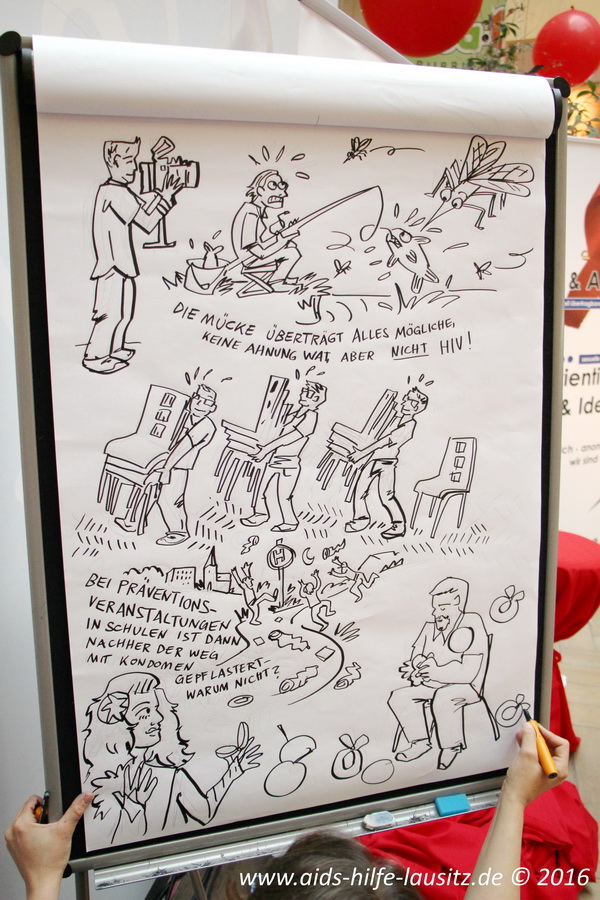 DIE MÜCKE ÜBERTRÄGT ALLES MÖGLICHE,
KEINE AHNUNG WAT, ABER NICHT HIV!
H
BEI PRÄVENTIONS-
VERANSTALTUNGEN
IN SCHULEN IST DANN
NACHHER DER WEG
MIT KONDOMEN
GEPFLASTERT-
WARUM NICHT?
& A
ienti
& Ide
ch - anon
wir sind
www.aids-hilfe-lausitz.de © 2016